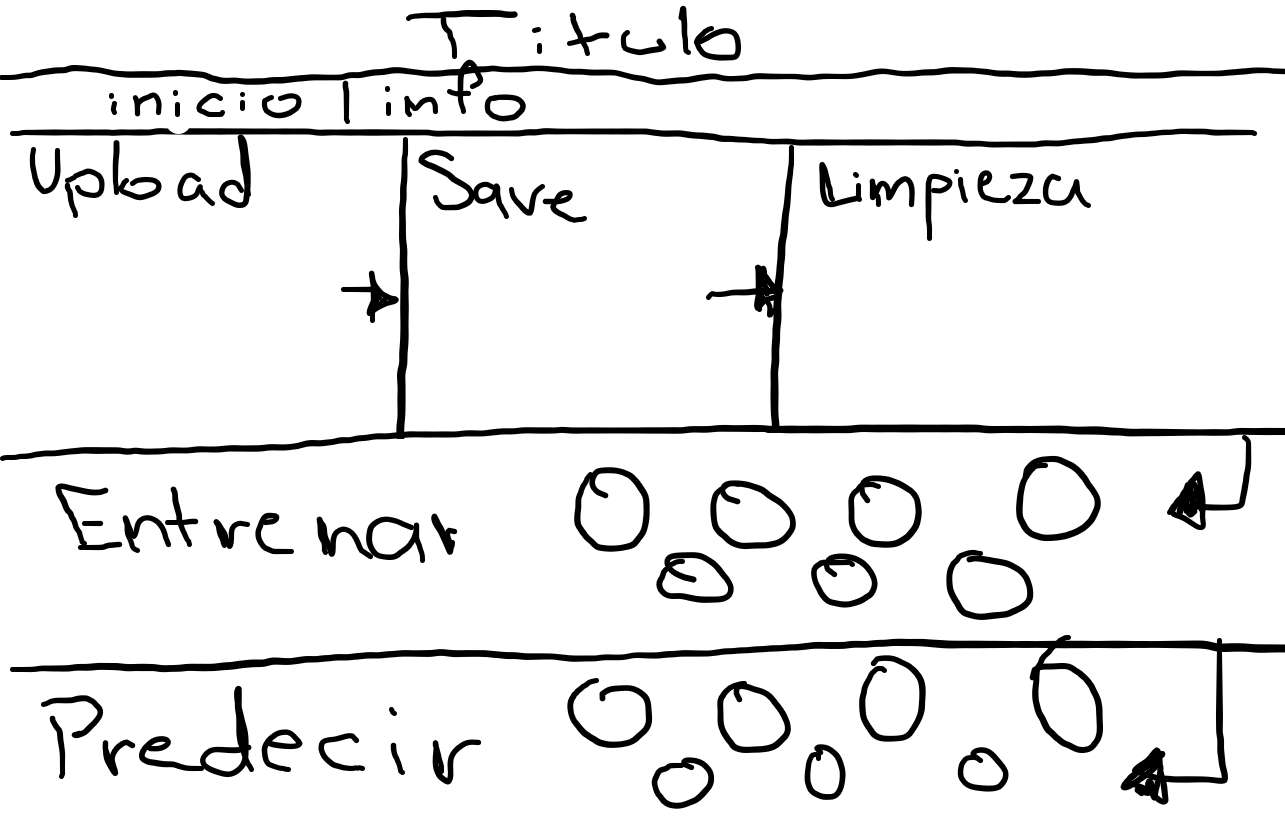 Titulo
inicio | info
Upload Save Limpieza
Entrenar
Predecir